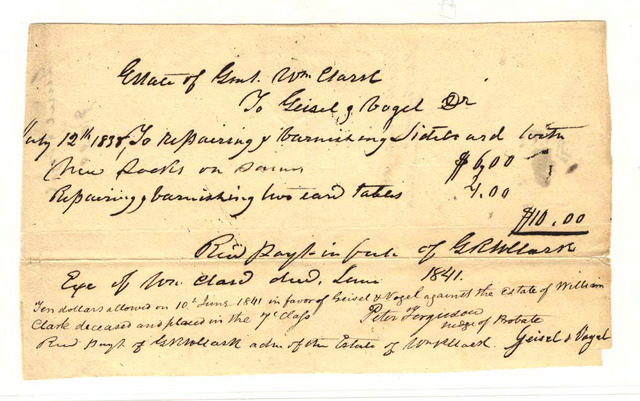 Estate of Genl. Wm Clark
To Geisel & Vogel Dr
July 12th 1838, To repairing & varnishing Sideboard with
New Locks on Same $6.00
Repairing & varnishing two card tables 4.00
$10.00
Recd payt in full of G R H Clark
Exe of Wm Clark decd, June 1841.
Ten dollars allowed on 10th June 1841 in favor of Geisel & Vogel against the Estate of William
Clark deceased and placed in the Class Peter Ferguson
Judge of Probate
Recd Payt of G R H Clark adm of the Estate of Wm Clark. Geisel & Vogel